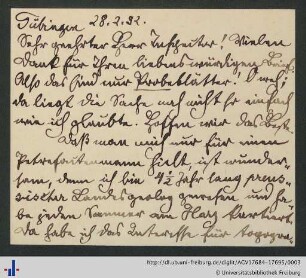 Tübingen 28.2.32.
Sehr geehrter Herr Inspektor! Vielen
Dank für Ihren liebenswürdigen Brief.
Also das sind nur Probeblätter! O weh;
da liegt die Sache noch nicht so einfach
wie ich glaubte. Hoffen wir das Beste.
Daß man mich nur für einen
Petrefaktenmann hielt ist wunder-
sam, denn ich bin 4½ Jahr lang preus-
sischer Landesgeolog gewesen und ha-
be jeden Sommer am Harz kartiert.
Da habe ich das Interesse für topogra-
http://dl.ub.uni-freiburg.de/diglit/ACV17684-17695/0003
Universitätsbibliothek Freiburg